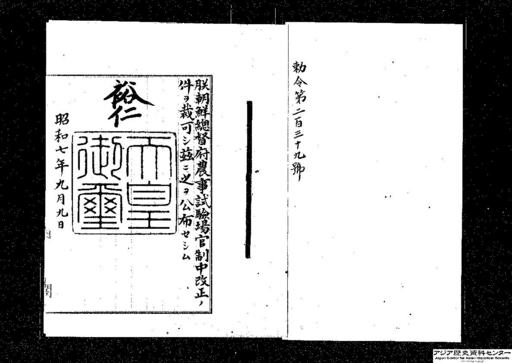 勅令第二百三十九號
朕朝鮮總督府農事試驗場官制中改正ノ
件ヲ裁可シ茲ニ之ヲ公布セシム
裕仁
天皇
御璽
昭和七年九月九日
アジア歴史資料センター
Japan Center for Asian Historical Records